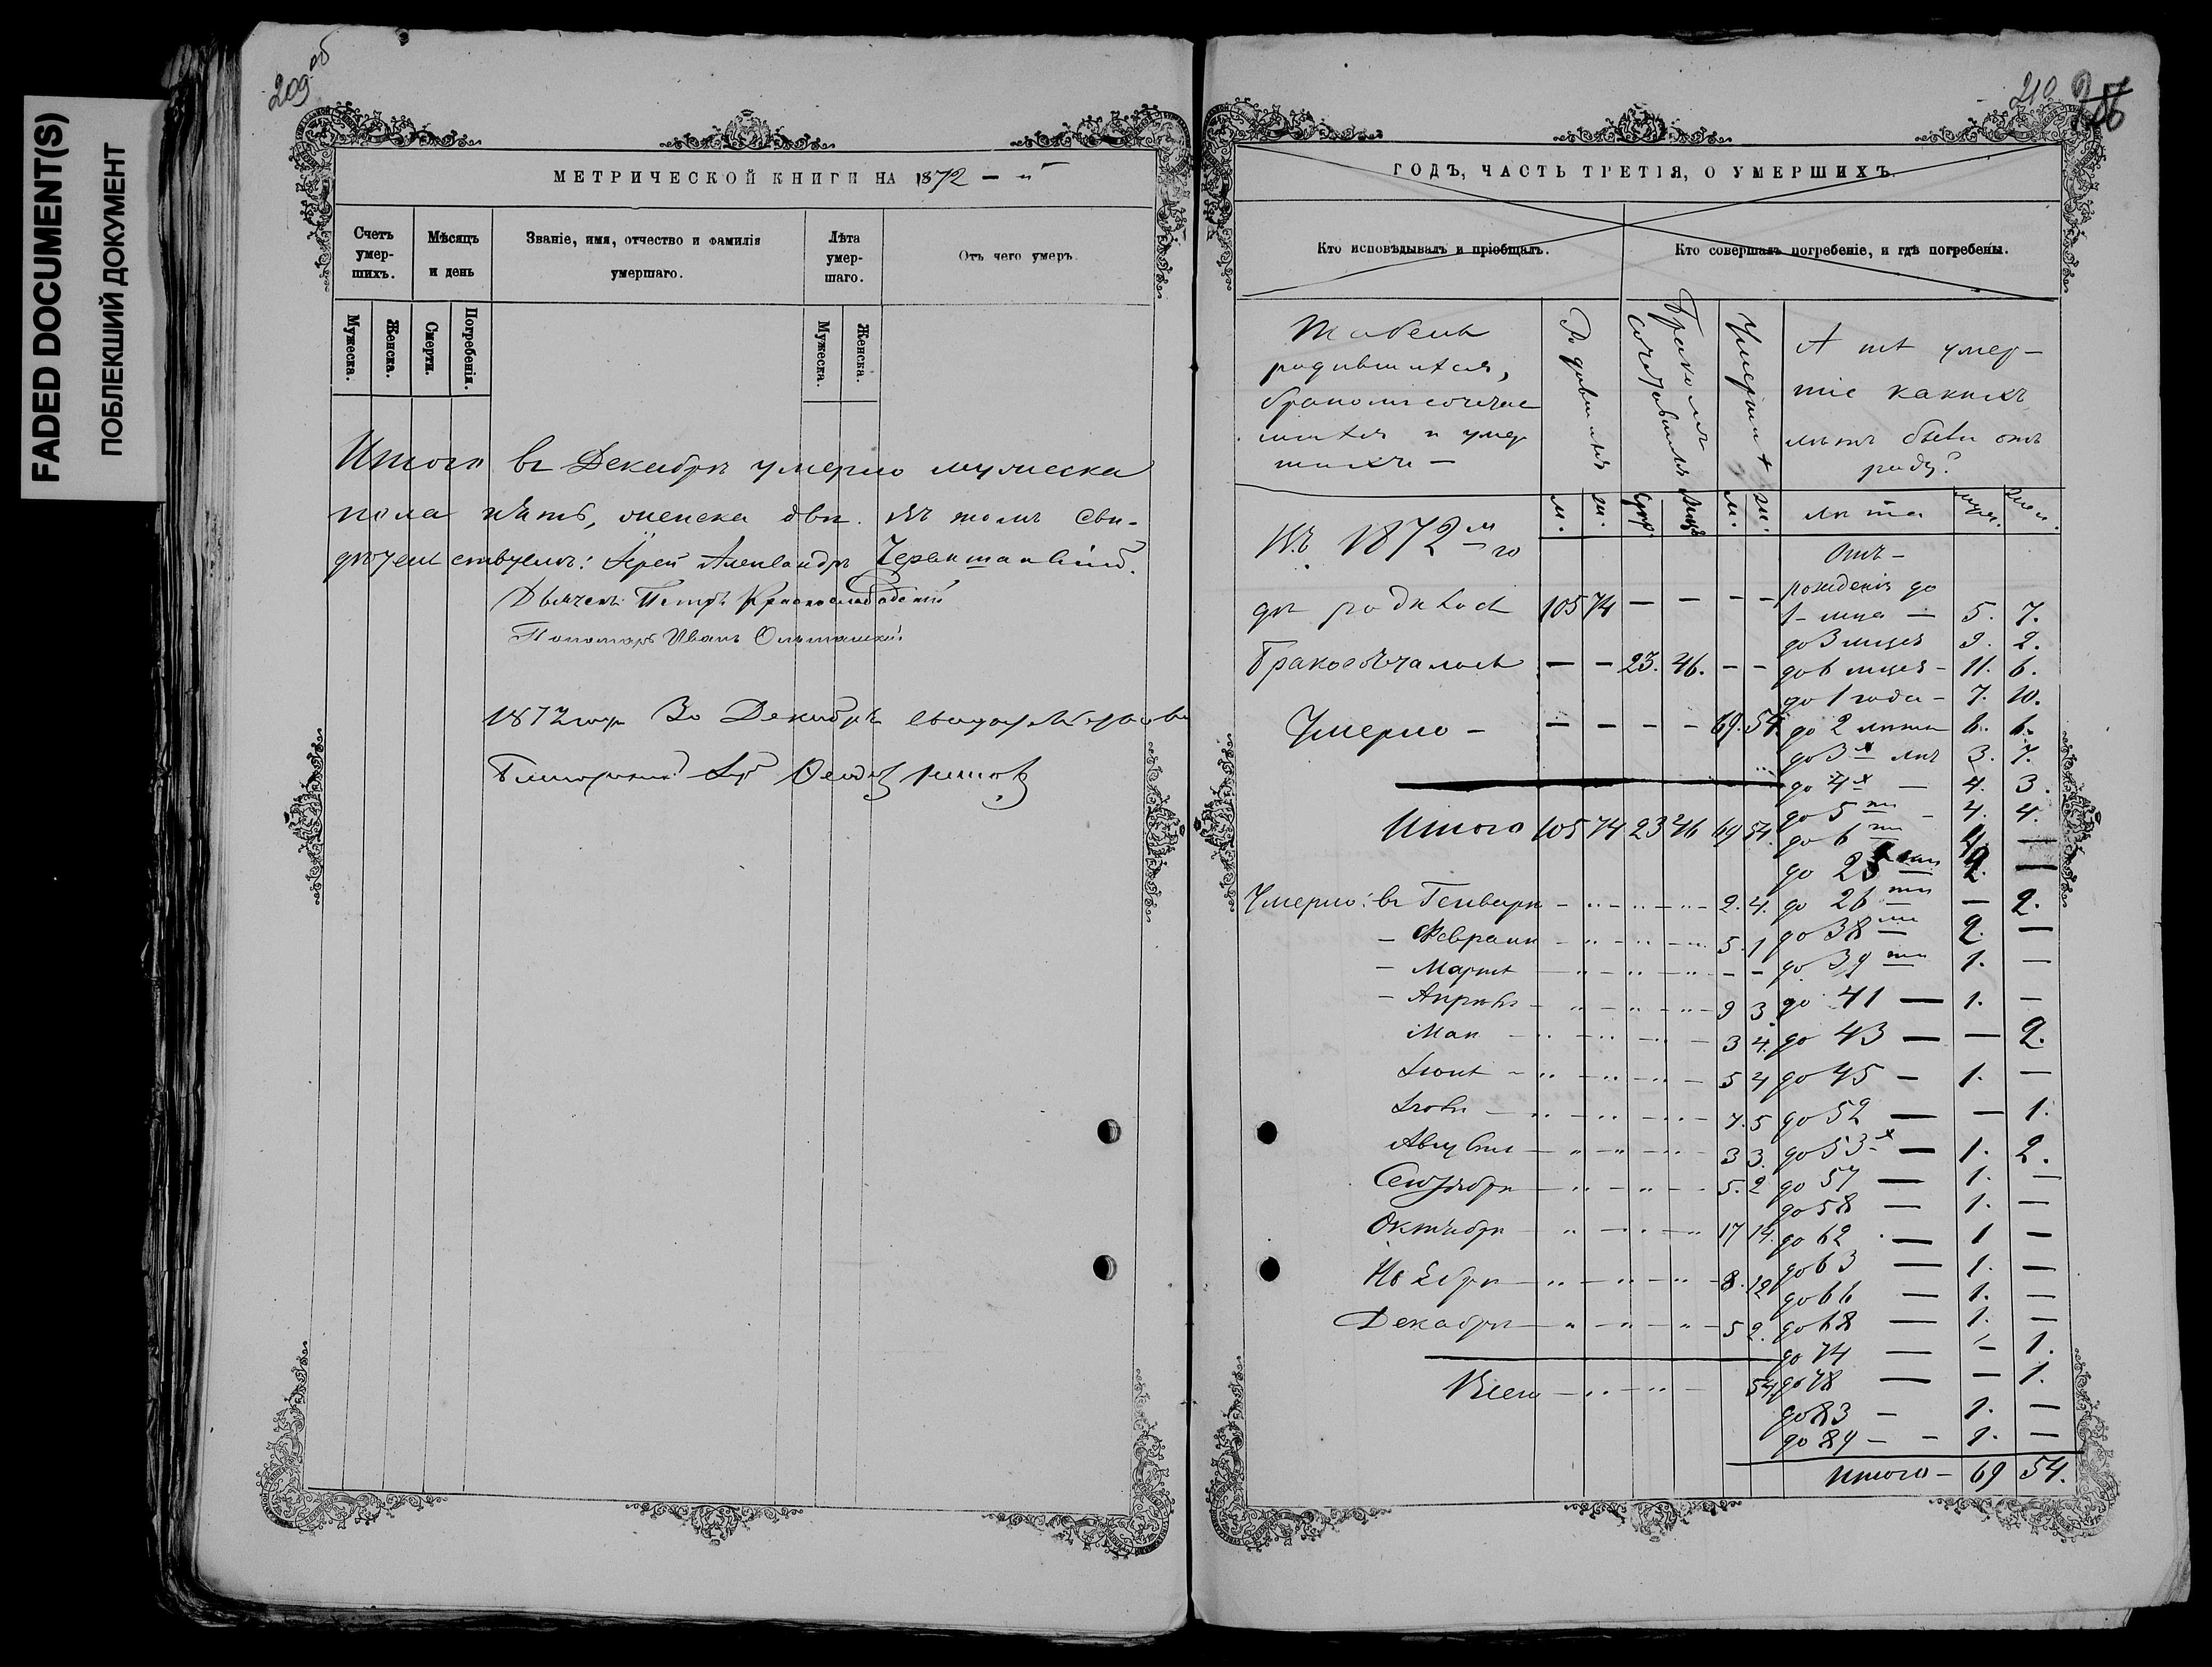 FADED DOCUMENT(S)
ПОБЛЕКШИЙ ДОКУМЕНТ
209 об
МЕТРИЧЕСКОЙ КНИГИ НА 1872 - й
Счетъ умер-шихъ.
Мѣсяцъ и день
Званіе, имя, отчество и фамилія умершаго.
Лѣта умер-шаго.
Отъ чего умеръ.
Мужеска.
Женска.
Смерти.
Погребенія.
Мужеска.
Женска.
Итого въ Декабрѣ умерло мужеска
пола пять, женска двѣ. Въ томъ сви-
дѣтельствуемъ: Іерей Александръ
Дьячекъ Петръ Краснослободскій
Пономарь Иванъ Ольшанскій
1872 года 30 Декабря
210
ГОДЪ, ЧАСТЬ ТРЕТІЯ, О УМЕРШИХЪ.
Кто исповѣдывалъ и пріобщалъ.
Кто совершалъ погребеніе, и гдѣ погребены.
Табель
родившихся,
бракомъ сочетав
шихся и умер
шихъ —
Родившихся
Бракомъ сочетавшихся
Умерших
А тѣ умер-
шіе какихъ
лѣтъ были отъ
роду?
м. ж. м. ж.
лѣта муж. жен.
Въ 1872 м го
дѣ родилось 105 74 — — — —
Бракосочталось — — 23. 46. — —
Умерло — — — — — 69. 54.
Итого 105 74 23 46 69 54.
Умерло: въ Генварѣ 2. 4.
Февралѣ 5. 1
Мартѣ — —
Апрѣлѣ 9 3
Маѣ 3 4.
Іюнѣ 5 4
Іюлѣ 7. 5
Августѣ 3 3.
Сентябрѣ 5. 2
Октябрѣ 17 14.
Ноябрѣ 8. 12
Декабрѣ 5 2.
Всего 54
Отъ —
рожденія до
1 — мца — 5. 7.
до 3 мцевъ 9. 2.
до 6 мцевъ — 11. 6.
до 1 года — 7. 10.
до 2 лѣтъ 6. 6.
до 3 х лѣтъ 3. 7.
до 4 х — 4. 3.
до 5 ти — 4. 4.
до 6 ти —
до 25 ти 2. —
до 26 ти — 2.
до 38 ми 2. —
до 39 ти 1. —
до 41 — 1. —
до 43 — — 2.
до 45 — 1. —
до 52 — — 1.
до 53 х — 1. 2.
до 57 — 1. —
до 58 — 1. —
до 62 — 1 —
до 63 — 1. —
до 66 — 1. —
до 68 — 1. —
до 74 — — 1.
до 78 — — 1.
до 83 — 1. —
до 89 — — 1. —
Итого — 69 54.